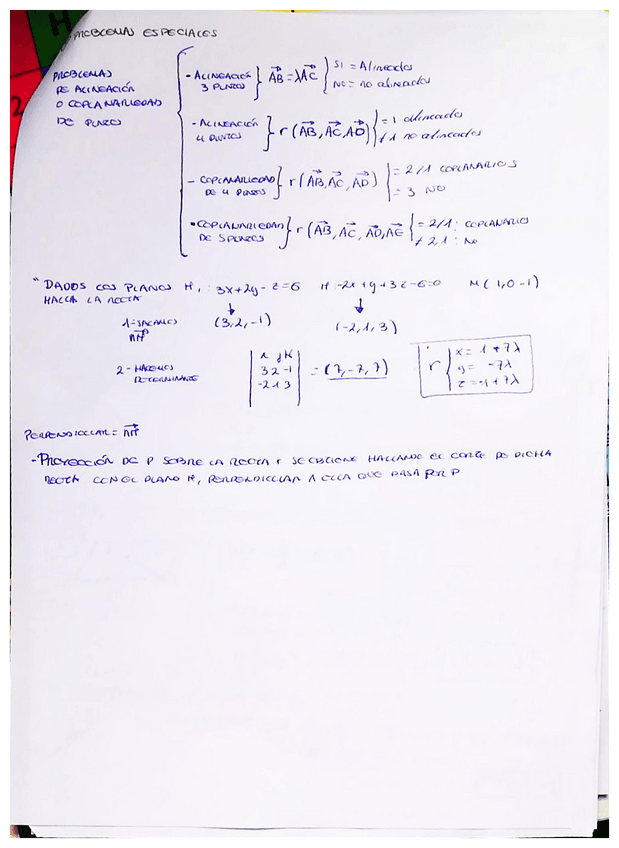 PROBLEMAS ESPECIALES
PROBLEMAS
DE ALINEACIÓN
O COPLANARIEDAD
DE PUNTOS
- ALINEACIÓN
3 PUNTOS } AB = λAC { SI = Alineados
NO = no alineados
- ALINEACIÓN
4 PUNTOS } r (AB, AC, AD) { = 1 alineados
≠ 1 no alineados
- COPLANARIEDAD
DE 4 PUNTOS } r (AB, AC, AD) { = 2/1 COPLANARIOS
= 3 NO
• COPLANARIEDAD
DE 5 PUNTOS } r (AB, AC, AD, AE { = 2/1: COPLANARIOS
≠ 2,1: NO
" DADOS LOS PLANOS : 3x+2y-z=6 : -2x+y+3z-6=0 M(1,0-1)
HALLA LA RECTA
1-SACAMOS (3,2,-1) (-2,1,3)
2- HACEMOS
DETERMINANTE
i j K
3 2 -1
-2 1 3
= (7,-7,7)
r { x = 1+7λ
y = -7λ
z = -1+7λ
PERPENDICULAR =
-PROYECCIÓN DE P SOBRE LA RECTA r SE OBTIENE HALLANDO EL CORTE DE DICHA
RECTA CON EL PLANO , PERPENDICULAR A ELLA QUE PASA POR P